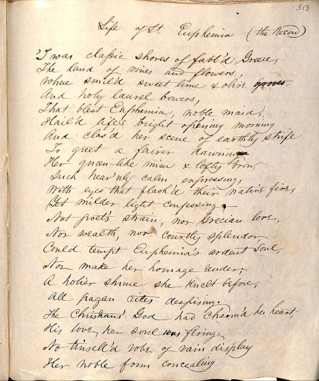 313
Life of St. Euphemia (the Recon)
'Twas classic shores of fabl'd Greece,
The land of vines and flowers,
Where smil'd sweet lime & olive groves
And holy laurel bowers,
That blest Euphemia, noble maid,
Hail'd life's bright opening morning
And clos'd her scene of earthly strife
To greet a fairer dawning
Her queen-like mien & lofty brow,
Such heav'nly calm expressing,
With eyes that flash'd their native fire,
Yet milder light confessing.
Not poet's strain, nor Grecian lore,
Nor wealth, nor courtly splendor
Could tempt Euphemia's ardent soul
Nor make her homage render;
A holier shrine she knelt before,
All pagan rites despising.
The Christians' God had charm'd her heart
His love, her soul was firing
No tinsell'd robe of vain display
Her noble form concealing